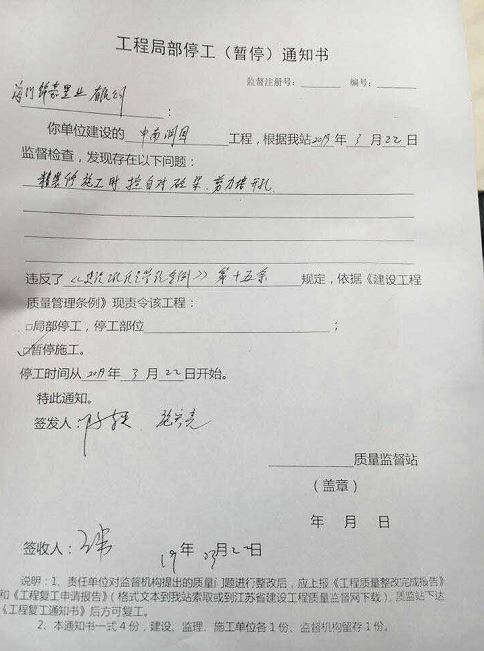 工程局部停工（暂停）通知书
监督注册号：　　编号：
海门锦嘉置业有限公司：
你单位建设的 中南 工程，根据我站2019年3月22日
监督检查，发现存在以下问题：
精装修施工时擅自对砼梁、剪力墙开孔
违反了《建设工程质量管理条例》第十五条 规定，依据《建设工程
质量管理条例》现责令该工程：
□局部停工，停工部位　　；
☑暂停施工。
停工时间从2019年3月22日开始。
特此通知。
签发人：
质量监督站
（盖章）
年 月 日
签收人：
19年03月22日
说明：1、责任单位对监督机构提出的质量问题进行整改后，应上报《工程质量整改完成报告》
和《工程复工申请报告》（格式文本到我站索取或到江苏省建设工程质量监督网下载），质监站下达
《工程复工通知书》后方可复工。
2、本通知书一式4份，建设、监理、施工单位各1份、监督机构留存1份。